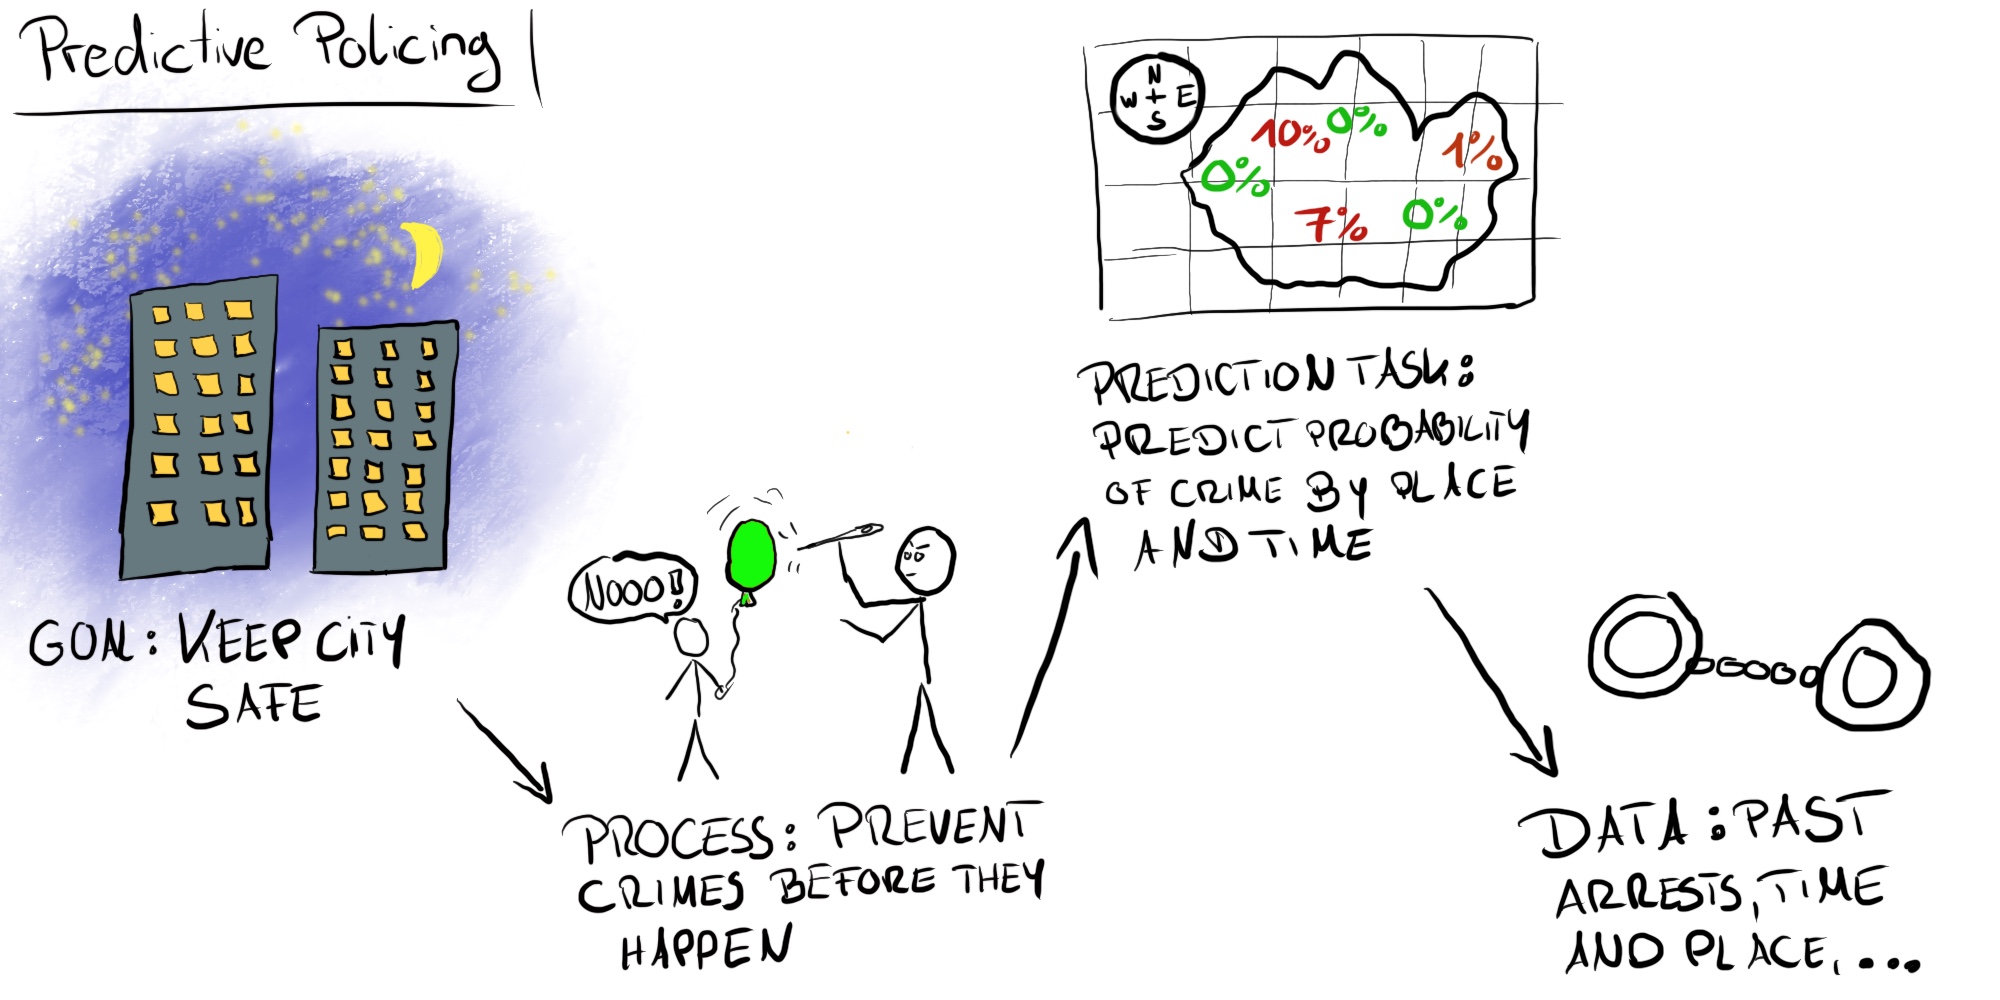 Predictive Policing
GOAL: KEEP CITY
SAFE
NOOO!!
PROCESS: PREVENT
CRIMES BEFORE THEY
HAPPEN
N
W + E
S
10% 0%
1%
0%
7% 0%
PREDICTION TASK:
PREDICT PROBABILITY
OF CRIME BY PLACE
AND TIME
DATA: PAST
ARRESTS, TIME
AND PLACE, ...